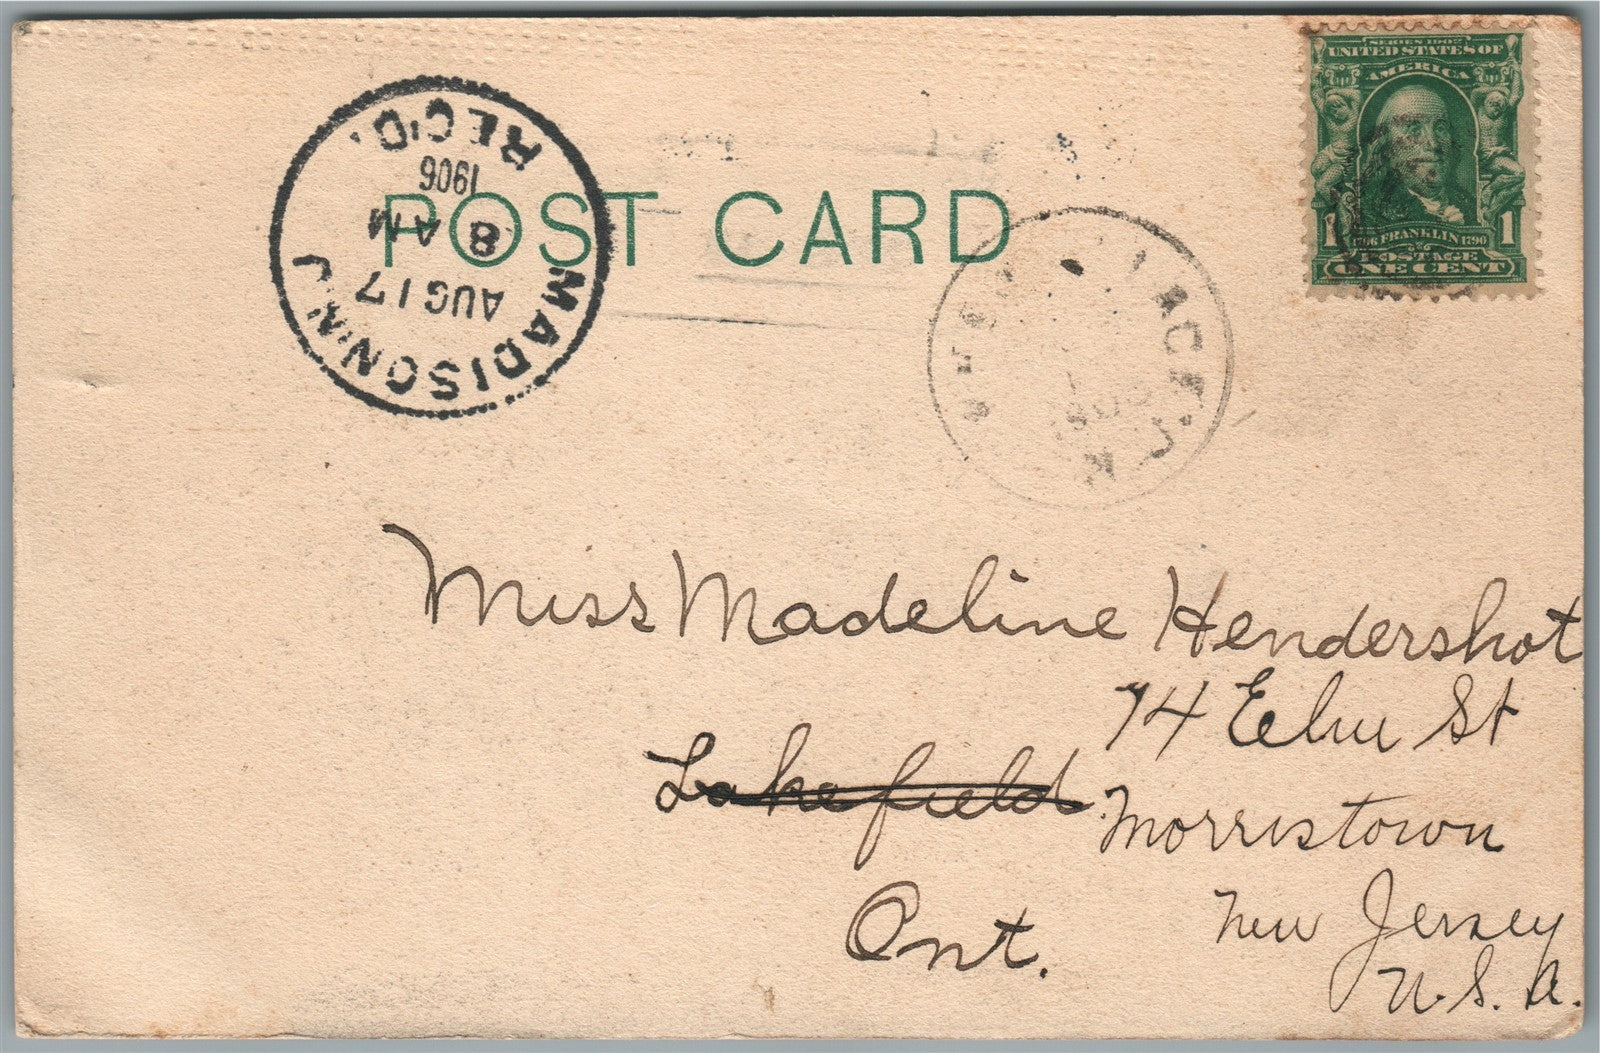 SERIES 1902
UNITED STATES OF
AMERICA
1 1706 FRANKLIN 1790 1
POSTAGE
ONE CENT
POST CARD
MADISON, N.J.
AUG 17
8 AM
1906
REC'D.
Miss Madeline Hendershot
74 Eelm St
Lakefield
Morristown
Ont.
New Jersey
U.S.A.